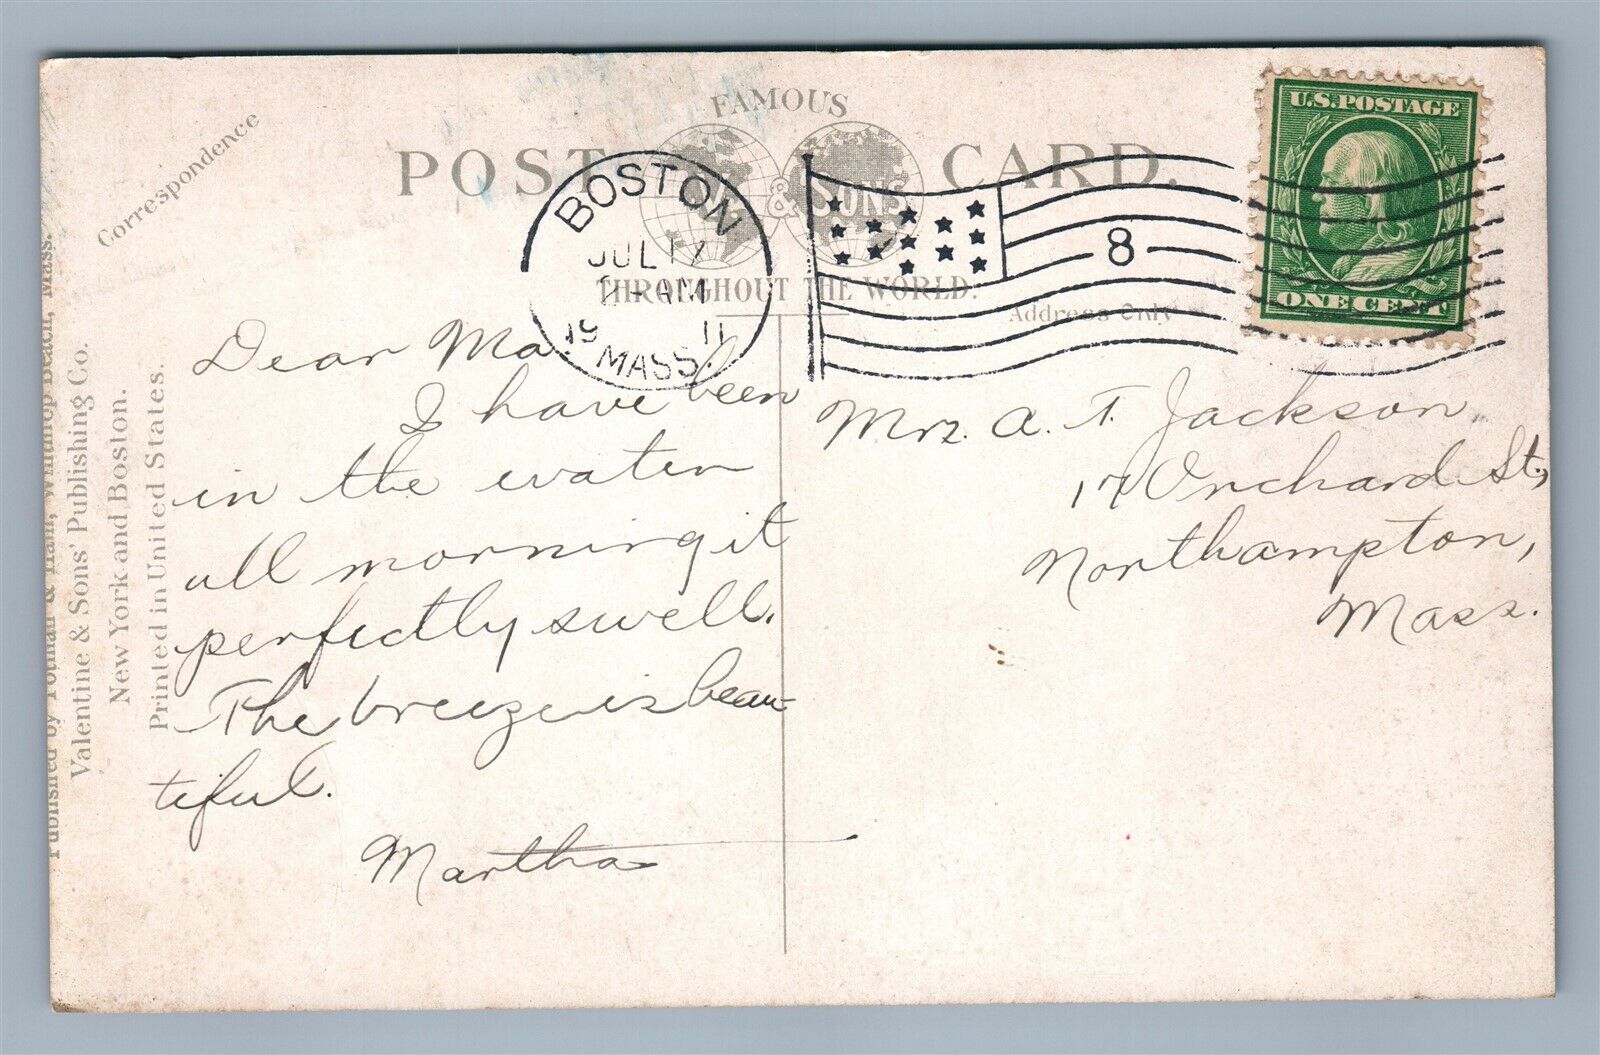 FAMOUS
POST CARD.
& SONS
THROUGHOUT THE WORLD.
Correspondence
Address Only
BOSTON
JUL 17
-AM
19 11
MASS.
8
U.S. POSTAGE
ONE CENT
Dear Ma.
I have been
in the water
all morning it
perfectly swell.
The breeze is beau-
tiful.
Martha
Mrs. A. T. Jackson
17 Orchard St.,
Northampton,
Mass.
Published by & Hall, Winthrop Beach, Mass.
Valentine & Sons' Publishing Co.
New York and Boston.
Printed in United States.